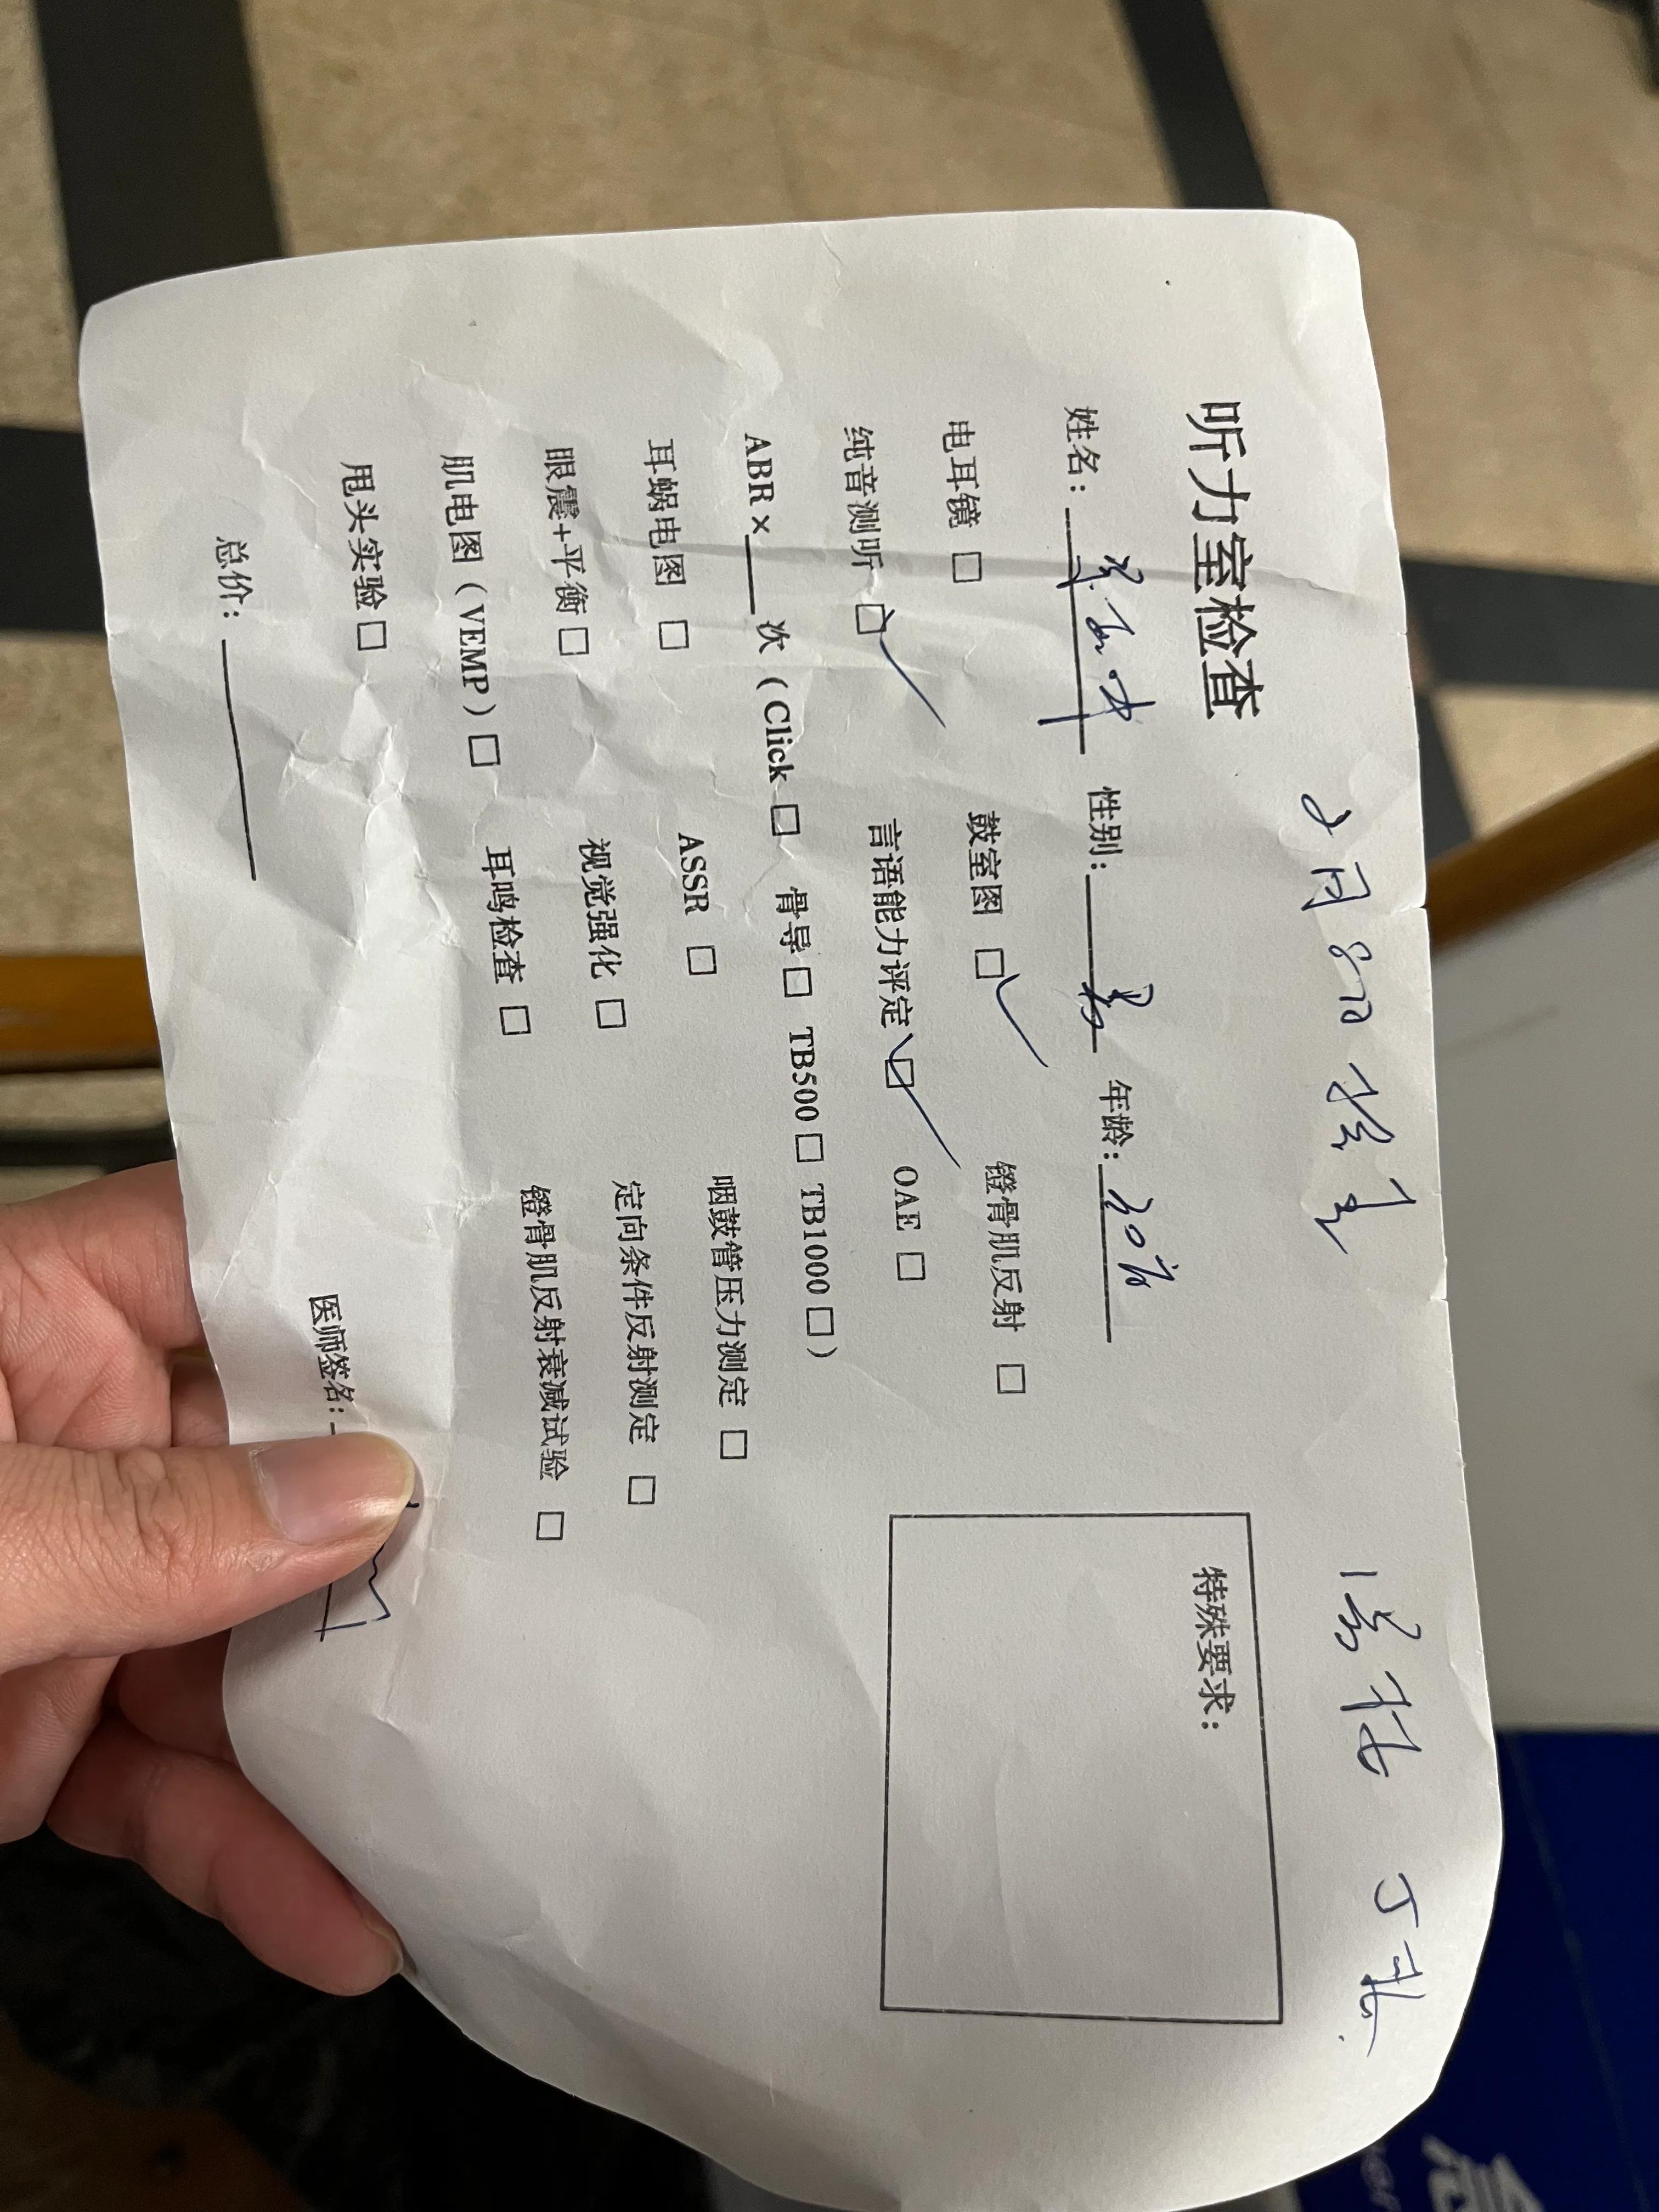 2月8日 检查
听力室检查
特殊要求：
姓名： 性别：男 年龄：30岁
电耳镜 □ 鼓室图 □ 镫骨肌反射 □
纯音测听 □ 言语能力评定 □ OAE □
ABR×____次（Click □ 骨导 □ TB500 □ TB1000 □）
耳蜗电图 □ ASSR □ 咽鼓管压力测定 □
眼震+平衡 □ 视觉强化 □ 定向条件反射测定 □
肌电图（VEMP）□ 耳鸣检查 □ 镫骨肌反射衰减试验 □
甩头实验 □
总价： 医师签名：